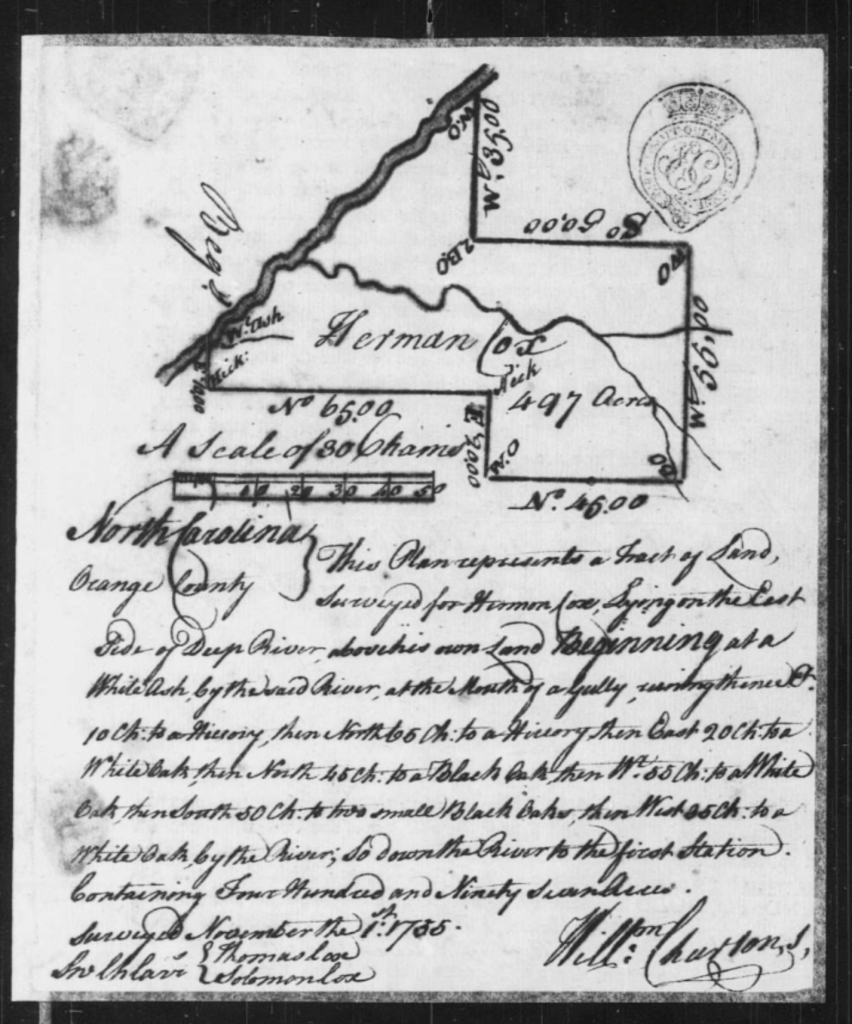 W.O
Wt. 35,00
So 50.00
2.B.O
W O
Begg.
W. Ash
Herman Cox
497 Acres
Wt. 55,00
Hick:
Hick
Et. 10,00
No 65.00
Et. 20.00
W.O
BO
No. 45.00
A Scale of 30 Chains
10 20 30 40 50
North Carolina
Orange County
This Plan represents a Tract of Land,
Surveyed for Hermon Cox, Lying on the East
Side of Deep River, above his own Land Beginning at a
White Ash, by the said River, at the Mouth of a Gully, runing thence Et.
10 Ch: to a Hiccory, then North 65 Ch: to a Hiccory then East 20 Ch: to a
White Oak, then North 45 Ch: to a Black Oak, then Wt. 55 Ch: to a White
Oak, then South 50 Ch: to two small Black Oaks, then West 35 Ch: to a
White Oak, by the River; So down the River to the first Station.
Containing Four Hundred and Ninety Seven Acres.
Surveyed November the 1st. 1755.
Thomas Cox
Solomon Cox
Willm: Churton, S,